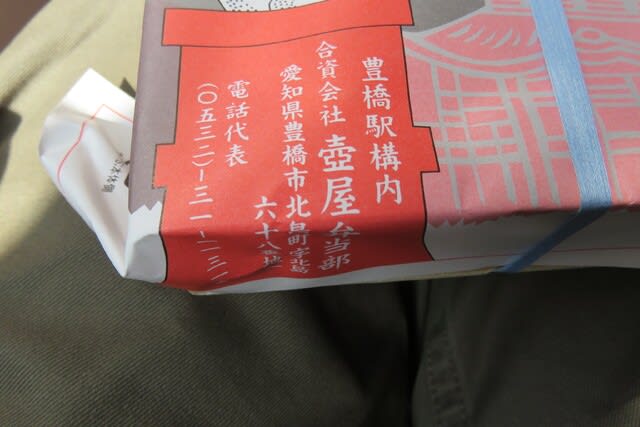 豊橋駅構内
合資会社 壺屋弁当部
愛知県豊橋市北白町字北島
六十八地
電話代表
(〇五三二)-三一-一一三